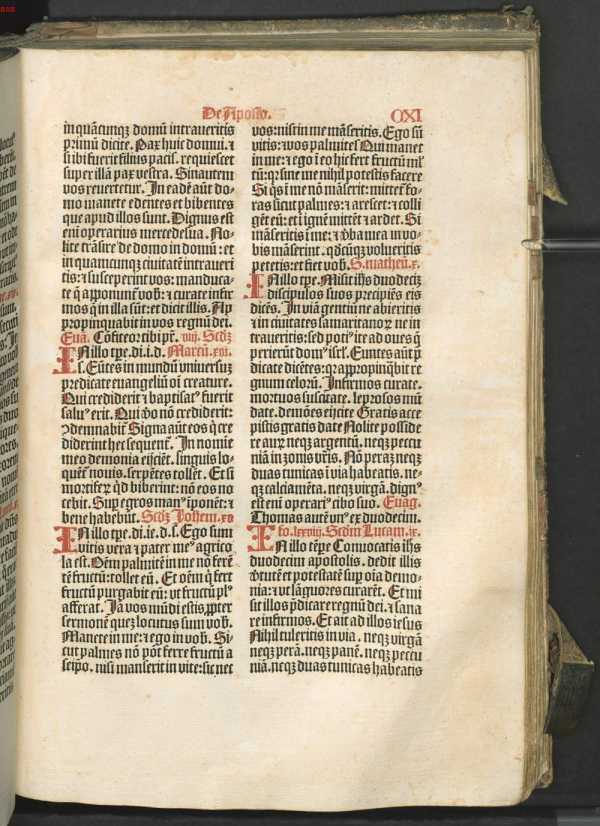 De Aposto. CXI
in quācunqꝫ domū intraueritis
primū dicite. Pax huic domui. ⁊
si ibi fuerit filius pacis. requiescet
super illā pax vestra. Sin autem
vos reuertetur. In eadē aūt do-
mo manete edentes et bibentes
que apud illos sunt. Dignus est
eni operarius mercede sua. No-
lite trāsire de domo in domū: et
in quamcunqꝫ ciuitatē intraueri
tis: ⁊ susceperint vos: manduca-
te q̄ apponunt͛ vob̄: ⁊ curate infir
mos q̄ in illa sūt: et dicit illis. Ap
propinquabit in vos regnū dei.
Euā. Cōfiteor tibi pr̄. viij. Scdꝫ
IN illo tꝑe. di. i. d. Marcū. xvi.
s. Eūtes in mundū vniuersuꝫ
predicate euangeliū oī creature.
Qui crediderit ⁊ baptisatꝰ fuerit
saluꝰ erit. Qui ꝟo nō crediderit:
ꝯdemnabit͛ Signa aūt eos q̄ cre
diderint hec sequent͛. In nomīe
meo demonia eijciēt. linguis lo-
quēt͛ nouis. serpētes tollēt. Et si
mortiferꝫ qd̄ biberint: nō eos no
cebit. Suꝑ egros manꝰ īponēt: ⁊
bene habebūt. Scdꝫ Johem. xv
IN illo tꝑe. di. ie. d. s. Ego sum
vitis vera ⁊ pater meꝰ agrico
la est. Oēm palmitē in me nō ferē
tē fructū: tollet eū. Et oēm q̄ fert
fructū purgabit eū: vt fructū plꝰ
afferat. Jā vos mūdi estis ꝓpter
sermonē queꝫ locutus sum vob̄.
Manete in me: ⁊ ego in vob̄. Si-
cut palmes nō pōt ferre fructū a
seip̄o. nisi manserit in vite: sic nec
vos: nisi in me mā̄seritis. Ego sū
vitis: ⁊ vos palmites Qui manet
in me: ⁊ ego ī eo hic fert fructū ml̄
tū: qꝛ sine me nihil potestis facere
Si q̄s ī me nō māserit: mittet͛ fo-
ras sicut palmes: ⁊ arescet: ⁊ colli
gēt eū: et ī ignē mittēt ⁊ ardet. Si
māseritis ī me: ⁊ ꝟba mea in vo-
bis māserint. qd̄cūqꝫ volueritis
petetis: et fiet vob̄. S. matheū. x.
IN illo tꝑe. Misit ih̄s duodecī
discipulos suos precipiēs eis
dicēs. In viā gentiū ne abieritis
⁊ in ciuitates samaritanoꝝ ne in
traueritis: sed potiꝰ ite ad oues q̄
perierūt domꝰ isr̄l. Euntes aūt p̄
dicate dicētes: qꝛ appropīqbit re
gnum celorū. Infirmos curate.
mortuos suscitate. leprosos mū
date. demōes eijcite Gratis acce
pistis gratis date Nolite posside
re aurꝫ neqꝫ argentū. neqꝫ pecu
niā in zonis vr̄is. Nō peraꝫ neqꝫ
duas tunicas ī via habeatis. ne-
qꝫ calciamēta. neqꝫ virgā. dignꝰ
est eni operariꝰ cibo suo. Euag.
Thomas autē vnꝰ ex duodecim.
fo. lxxviij. Scdm Lucam. ix.
IN illo tēpe Conuocatis ih̄s
duodecim apostolis. dedit illis
ꝟtutē et potestatē suꝑ oīa demo-
nia: ⁊ vt lāguores curarēt. Et mi
sit illos p̄dicare regnū dei. ⁊ sana
re infirmos. Et ait ad illos iesus
Nihil tuleritis in via. neqꝫ virgā
neqꝫ perā. neqꝫ panē. neqꝫ pecu
niā. neqꝫ duas tunicas habeatis